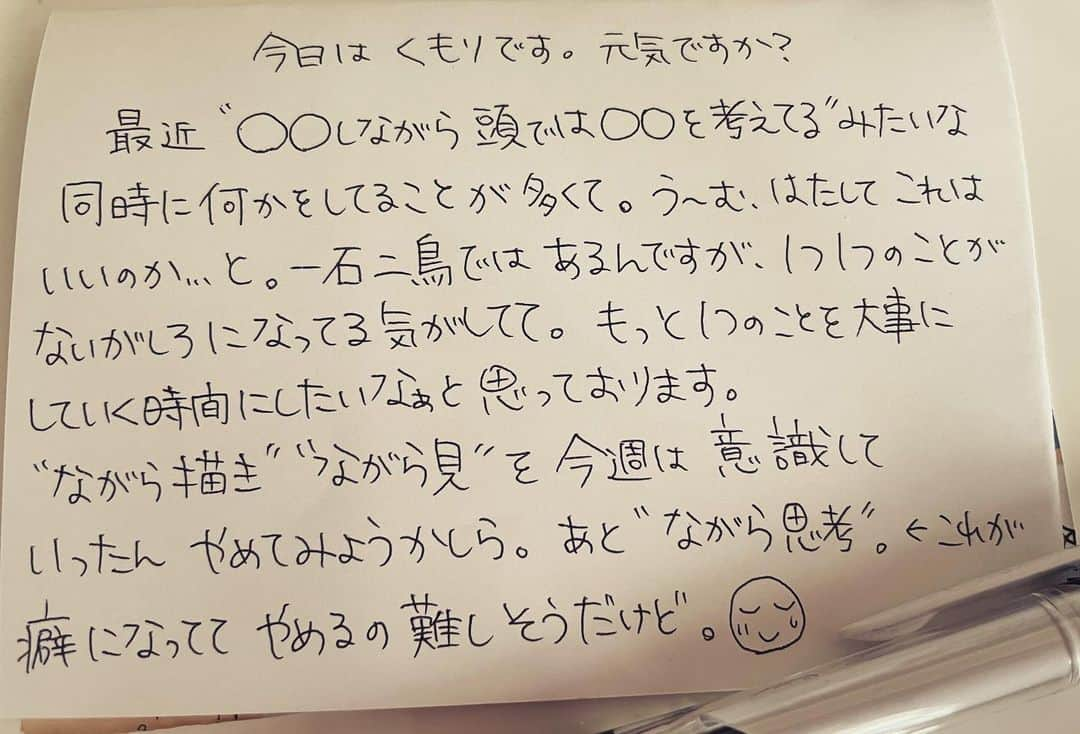 今日は くもりです。元気ですか？
最近 〝〇〇しながら 頭では〇〇を考えてる〞みたいな
同時に何かをしてることが多くて。う〜む、はたして これは
いいのか… と。一石二鳥では あるんですが、1つ1つのことが
ないがしろになってる気がしてて。もっと1つのことを大事に
していく時間にしたいなぁと思っております。
〝ながら描き〞〝ながら見〞を今週は 意識して
いったん やめてみようかしら。あと〝ながら思考〞。←これが
癖になってて やめるの難しそうだけど。